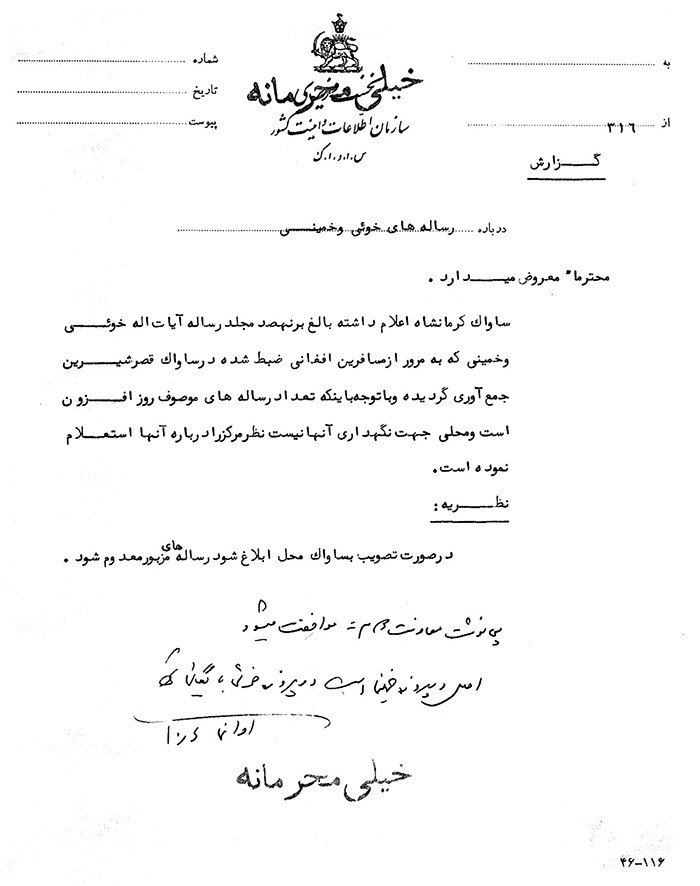 به
شماره
خیلی محرمانه
تاریخ
سازمان اطلاعات و امنیت کشور
پیوست
از ۳۱۶
س.ا.و.ا.ک
گزارش
درباره رساله های خوئی وخمینی
محترماً معروض میدارد .
ساواك کرمانشاه اعلام داشته بالغ برنهصد مجلد رساله آیات اله خوئی
وخمینی که به مرور ازمسافرین افغانی ضبط شده درساواك قصرشیرین
جمع آوری گردیده وباتوجه باینکه تعداد رساله های موصوف روز افزون
است ومحلی جهت نگهداری آنهانیست نظرمرکزراد رباره آنها استعلام
نموده است.
نظریه :
درصورت تصویب بساواك محل ابلاغ شود رساله های مزبورمعدوم شود .
پی نوشت معاونت موافقت میشود
اصل در پرونده خمینی است در پرونده خوئی بایگانی
خیلی محرمانه
۴۶-۱۱۶